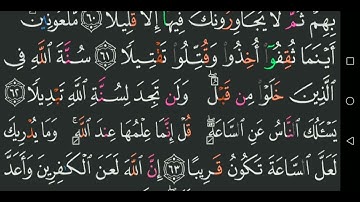 بِهِمْ ثُمَّ لَا يُجَاوِرُونَكَ فِيهَآ إِلَّا قَلِيلًا ٦٠ مَّلْعُونِينَ
أَيْنَمَا ثُقِفُوٓا۟ أُخِذُوا۟ وَقُتِّلُوا۟ تَقْتِيلًا ٦١ سُنَّةَ ٱللَّهِ فِى
ٱلَّذِينَ خَلَوْا۟ مِن قَبْلُ ۖ وَلَن تَجِدَ لِسُنَّةِ ٱللَّهِ تَبْدِيلًا ٦٢
يَسْـَٔلُكَ ٱلنَّاسُ عَنِ ٱلسَّاعَةِ ۖ قُلْ إِنَّمَا عِلْمُهَا عِندَ ٱللَّهِ ۚ وَمَا يُدْرِيكَ
لَعَلَّ ٱلسَّاعَةَ تَكُونُ قَرِيبًا ٦٣ إِنَّ ٱللَّهَ لَعَنَ ٱلْكَـٰفِرِينَ وَأَعَدَّ